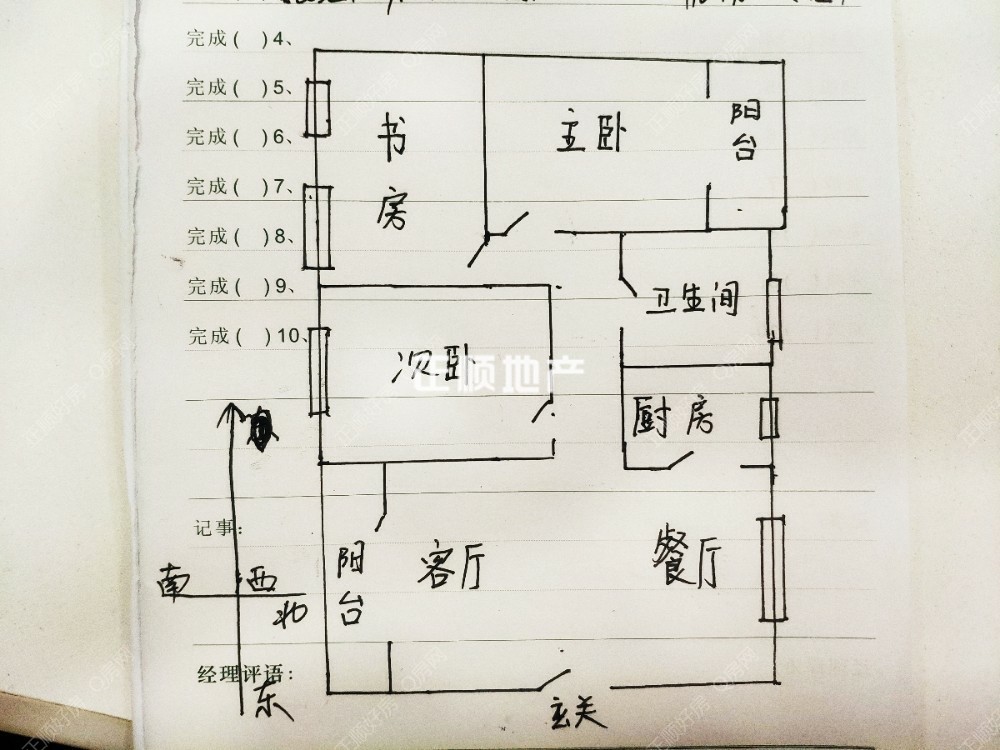 完成( )4、
完成( )5、
完成( )6、
完成( )7、
完成( )8、
完成( )9、
完成( )10、
书房
主卧
阳台
卫生间
次卧
正顺地产
厨房
记事:
阳台
客厅
餐厅
南
西
北
东
经理评语:
玄关